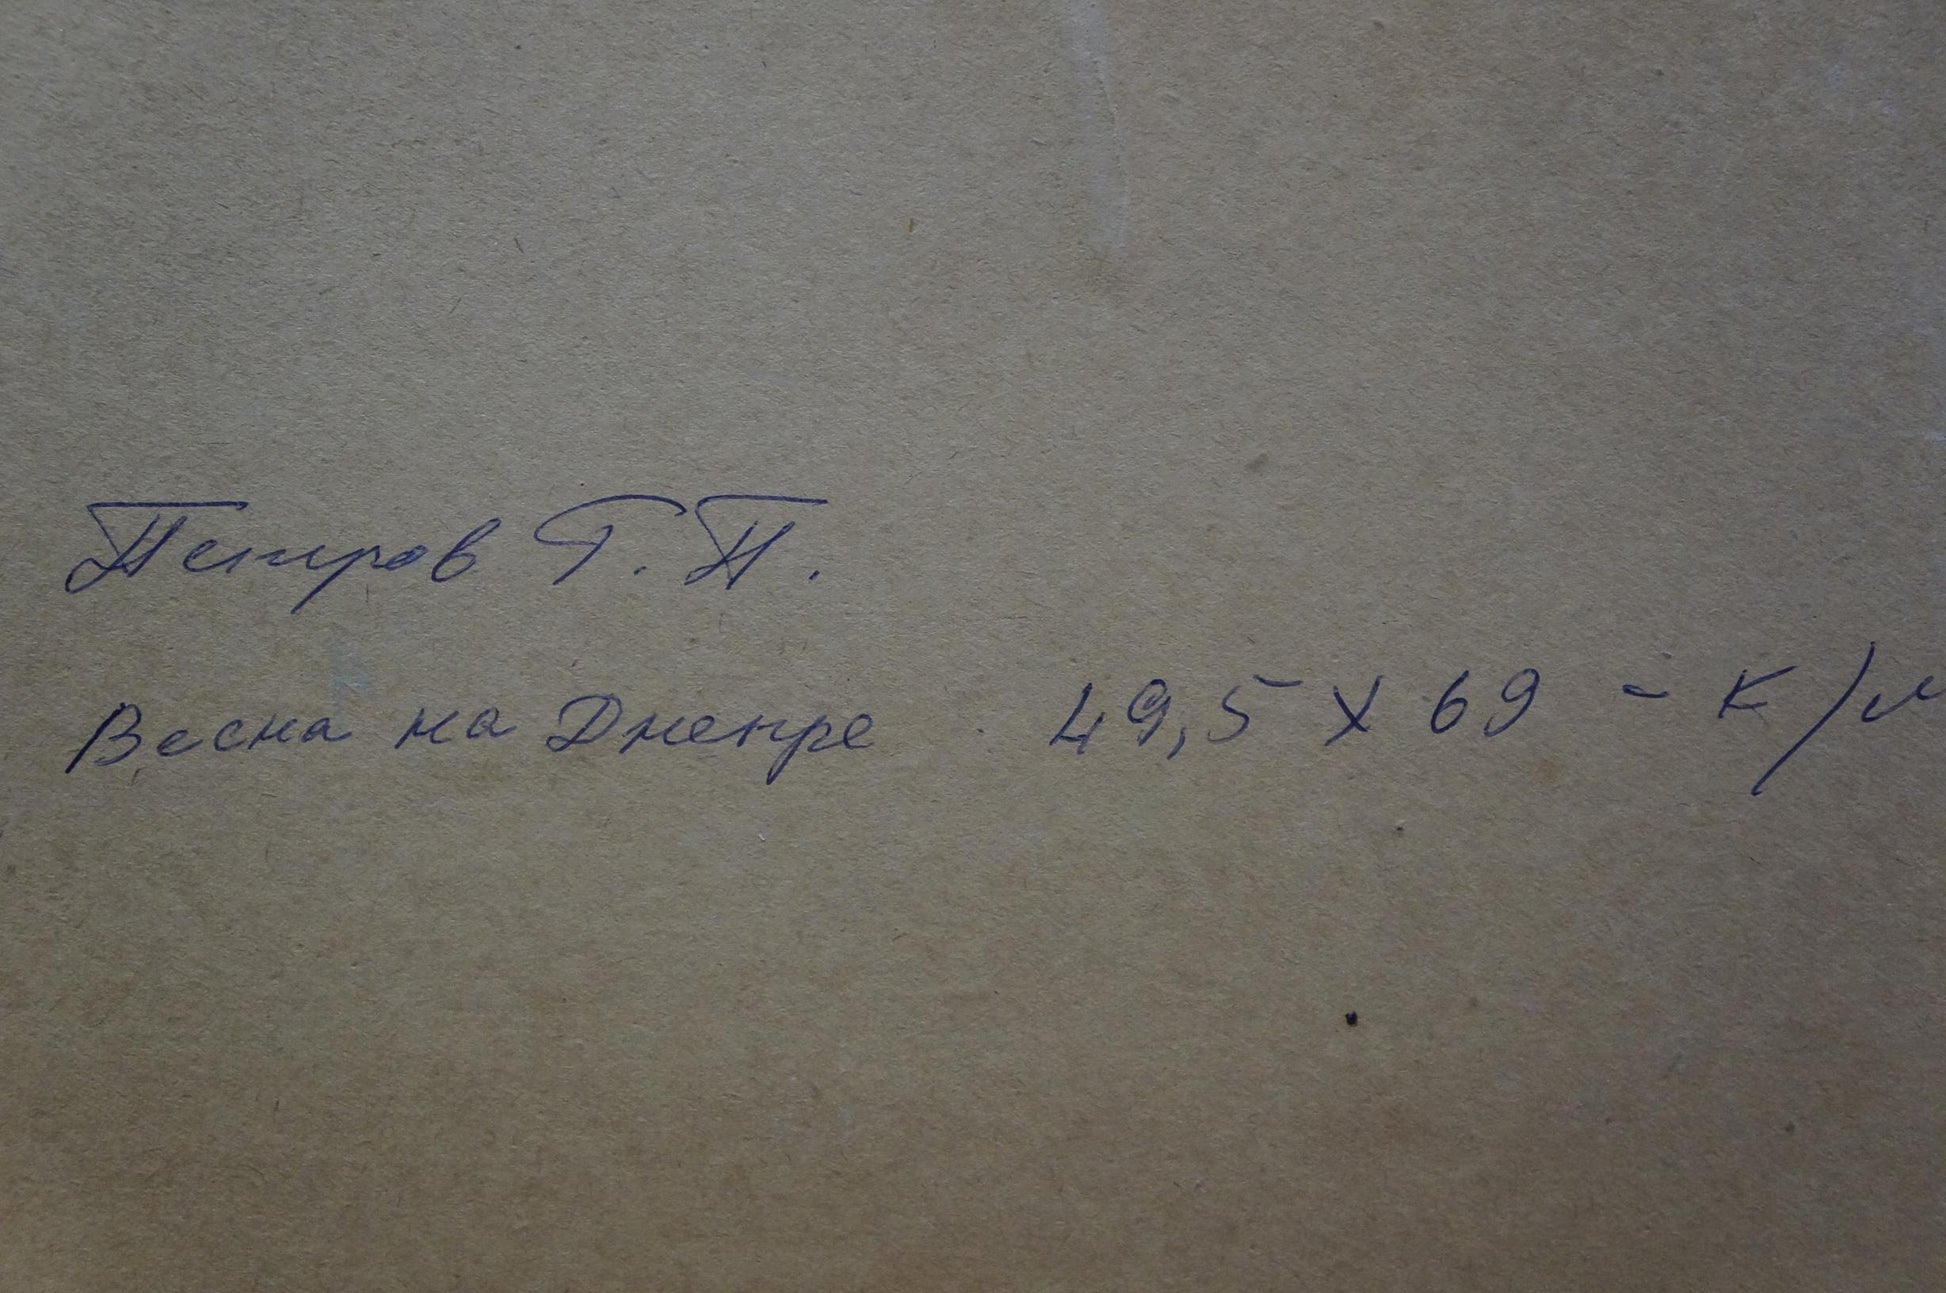 Петров Г. П.
Весна на Днепре 49,5 х 69 - к/м